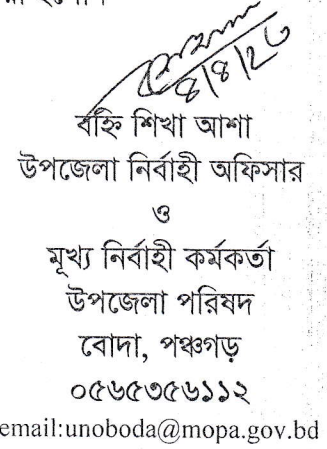 ৪/৪/২৬
বহ্নি শিখা আশা
উপজেলা নির্বাহী অফিসার
ও
মূখ্য নির্বাহী কর্মকর্তা
উপজেলা পরিষদ
বোদা, পঞ্চগড়
০৫৬৫৩৫৬১১২
email:unoboda@mopa.gov.bd